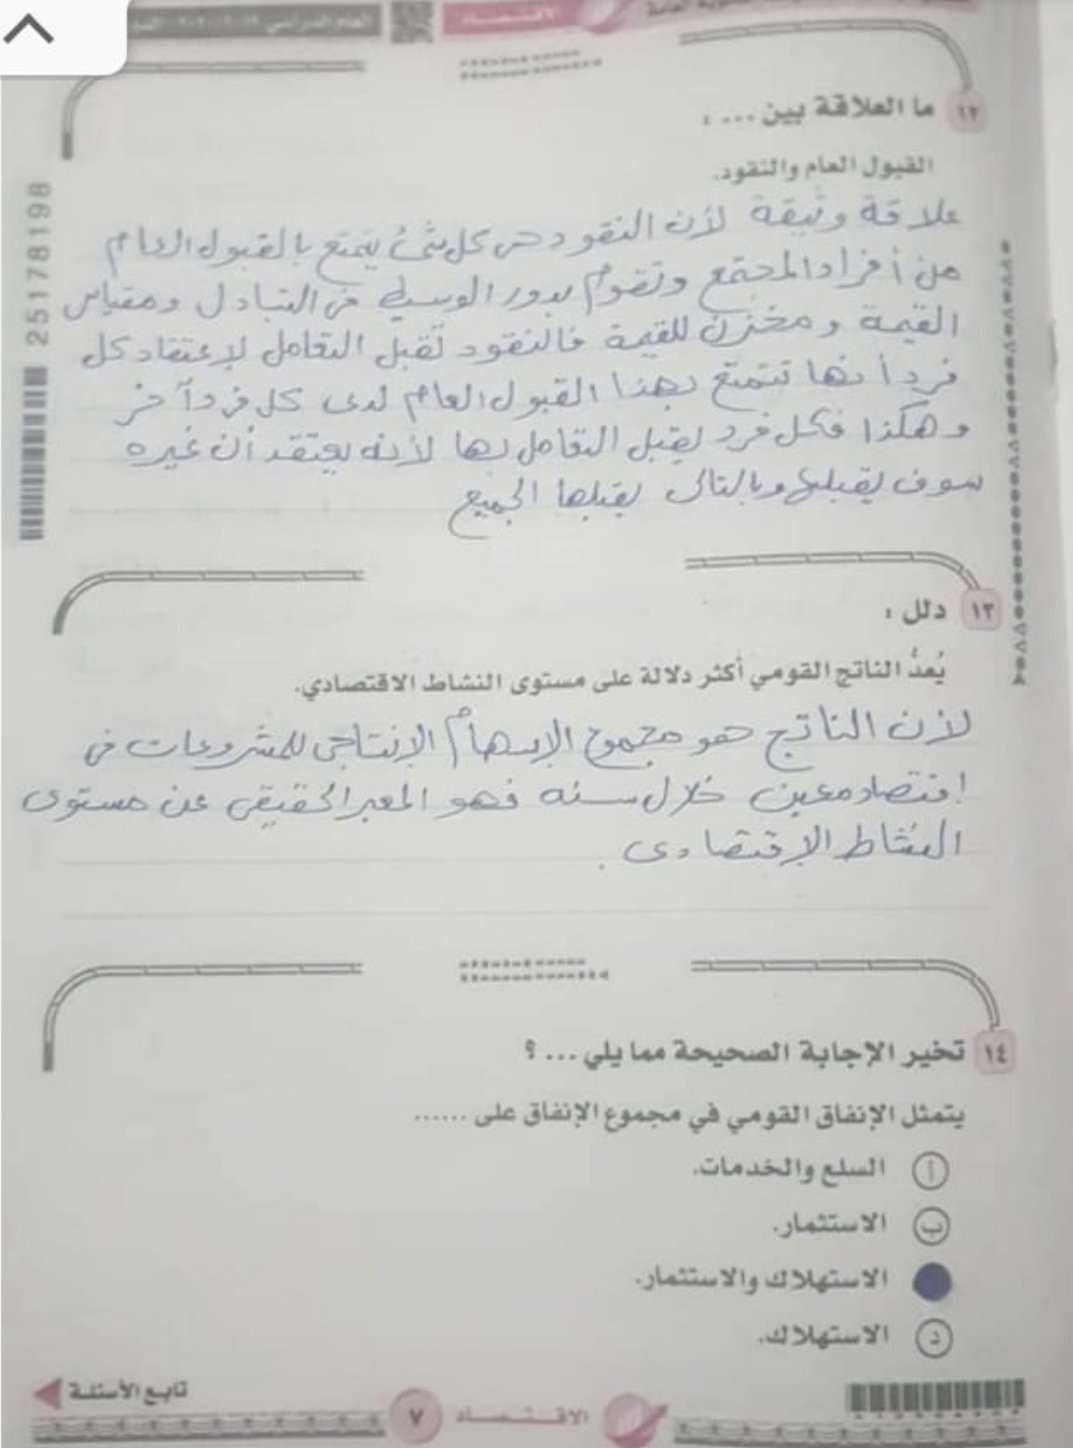 الاقتصاد
العام الدراسي ٢٠١٩ / ٢٠٢٠
١٢ ما العلاقة بين ... :
القبول العام والنقود.
علاقة وثيقة لأن النقود هى كل شئ يتمتع بالقبول العام
من أفراد المجتمع وتقوم بدور الوسيط فى التبادل ومقياس
القيمة ومخزن للقيمة فالنقود تقبل التعامل لإعتقاد كل
فرد أنها تتمتع بهذا القبول العام لدى كل فرد آخر
وهكذا فكل فرد يقبل التعامل بها لأنه يعتقد أن غيره
سوف يقبلها وبالتالى يقبلها الجميع
25178198
١٣ دلل :
يُعدُّ الناتج القومي أكثر دلالة على مستوى النشاط الاقتصادي.
لأن الناتج هو مجموع الإسهام الإنتاجى للمشروعات فى
إقتصاد معين خلال سنه فهو المعبر الحقيقى عن مستوى
النشاط الإقتصادى .
١٤ تخير الإجابة الصحيحة مما يلي ... ؟
يتمثل الإنفاق القومي في مجموع الإنفاق على ......
أ السلع والخدمات.
ب الاستثمار.
الاستهلاك والاستثمار.
د الاستهلاك.
تابع الأسئلة
٧ الاقتصاد